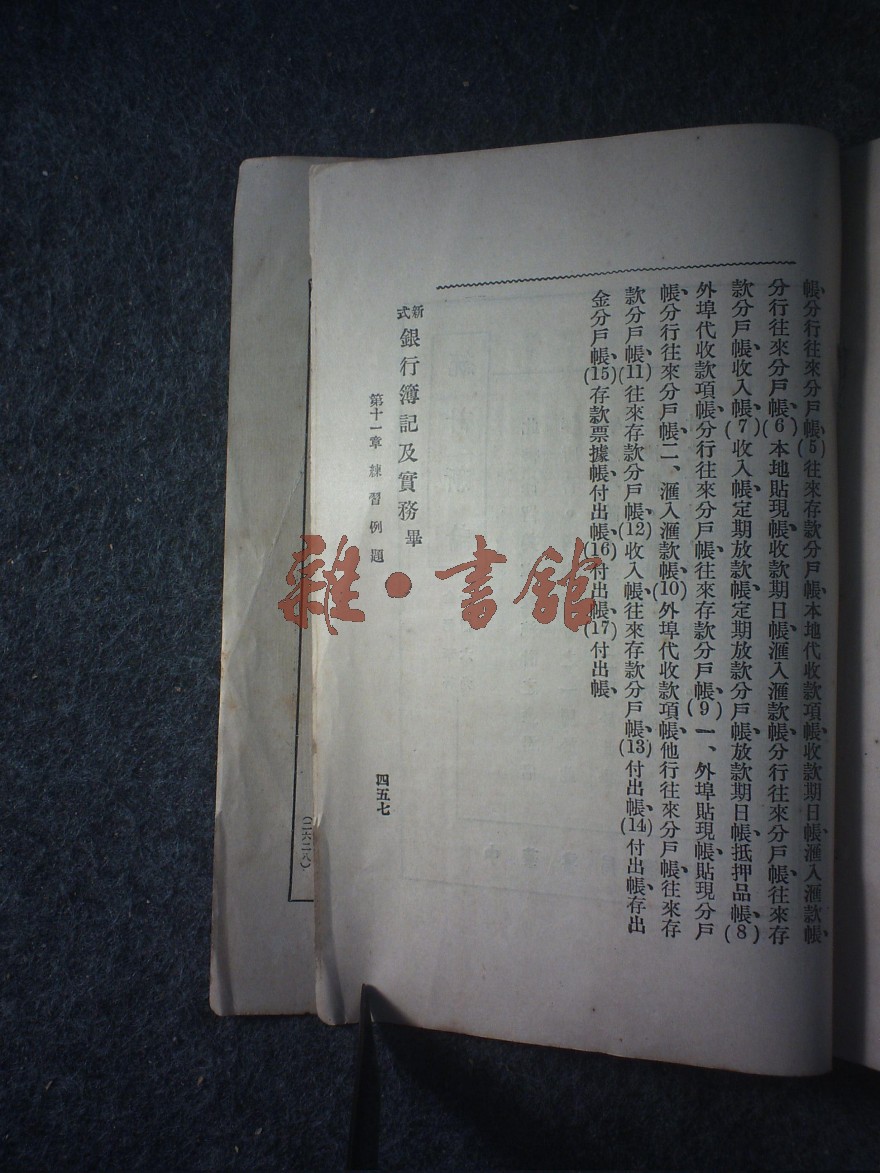 帳、分行往來分戶帳、(5)往來存款分戶帳、本地代收款項帳、收款期日帳、滙入滙款帳、
分行往來分戶帳、(6)本地貼現帳、收款期日帳、滙入滙款帳、分行往來分戶帳、往來存
款分戶帳、收入帳、(7)收入帳、定期放款帳、定期放款分戶帳、放款期日帳、抵押品帳、(8)
外埠代收款項帳、分行往來分戶帳、往來存款分戶帳、(9)一、外埠貼現帳、貼現分戶
帳、分行往來分戶帳、二、滙入滙款帳、(10)外埠代收款項帳、他行往來分戶帳、往來存
款分戶帳、(11)往來存款分戶帳、(12)收入帳、往來存款分戶帳、(13)付出帳、(14)付出帳、存出
金分戶帳、(15)存款票據帳、付出帳、(16)付出帳、(17)付出帳、
新式銀行簿記及實務畢
第十一章 練習例題
四五七
(二六二八)
雜·書館